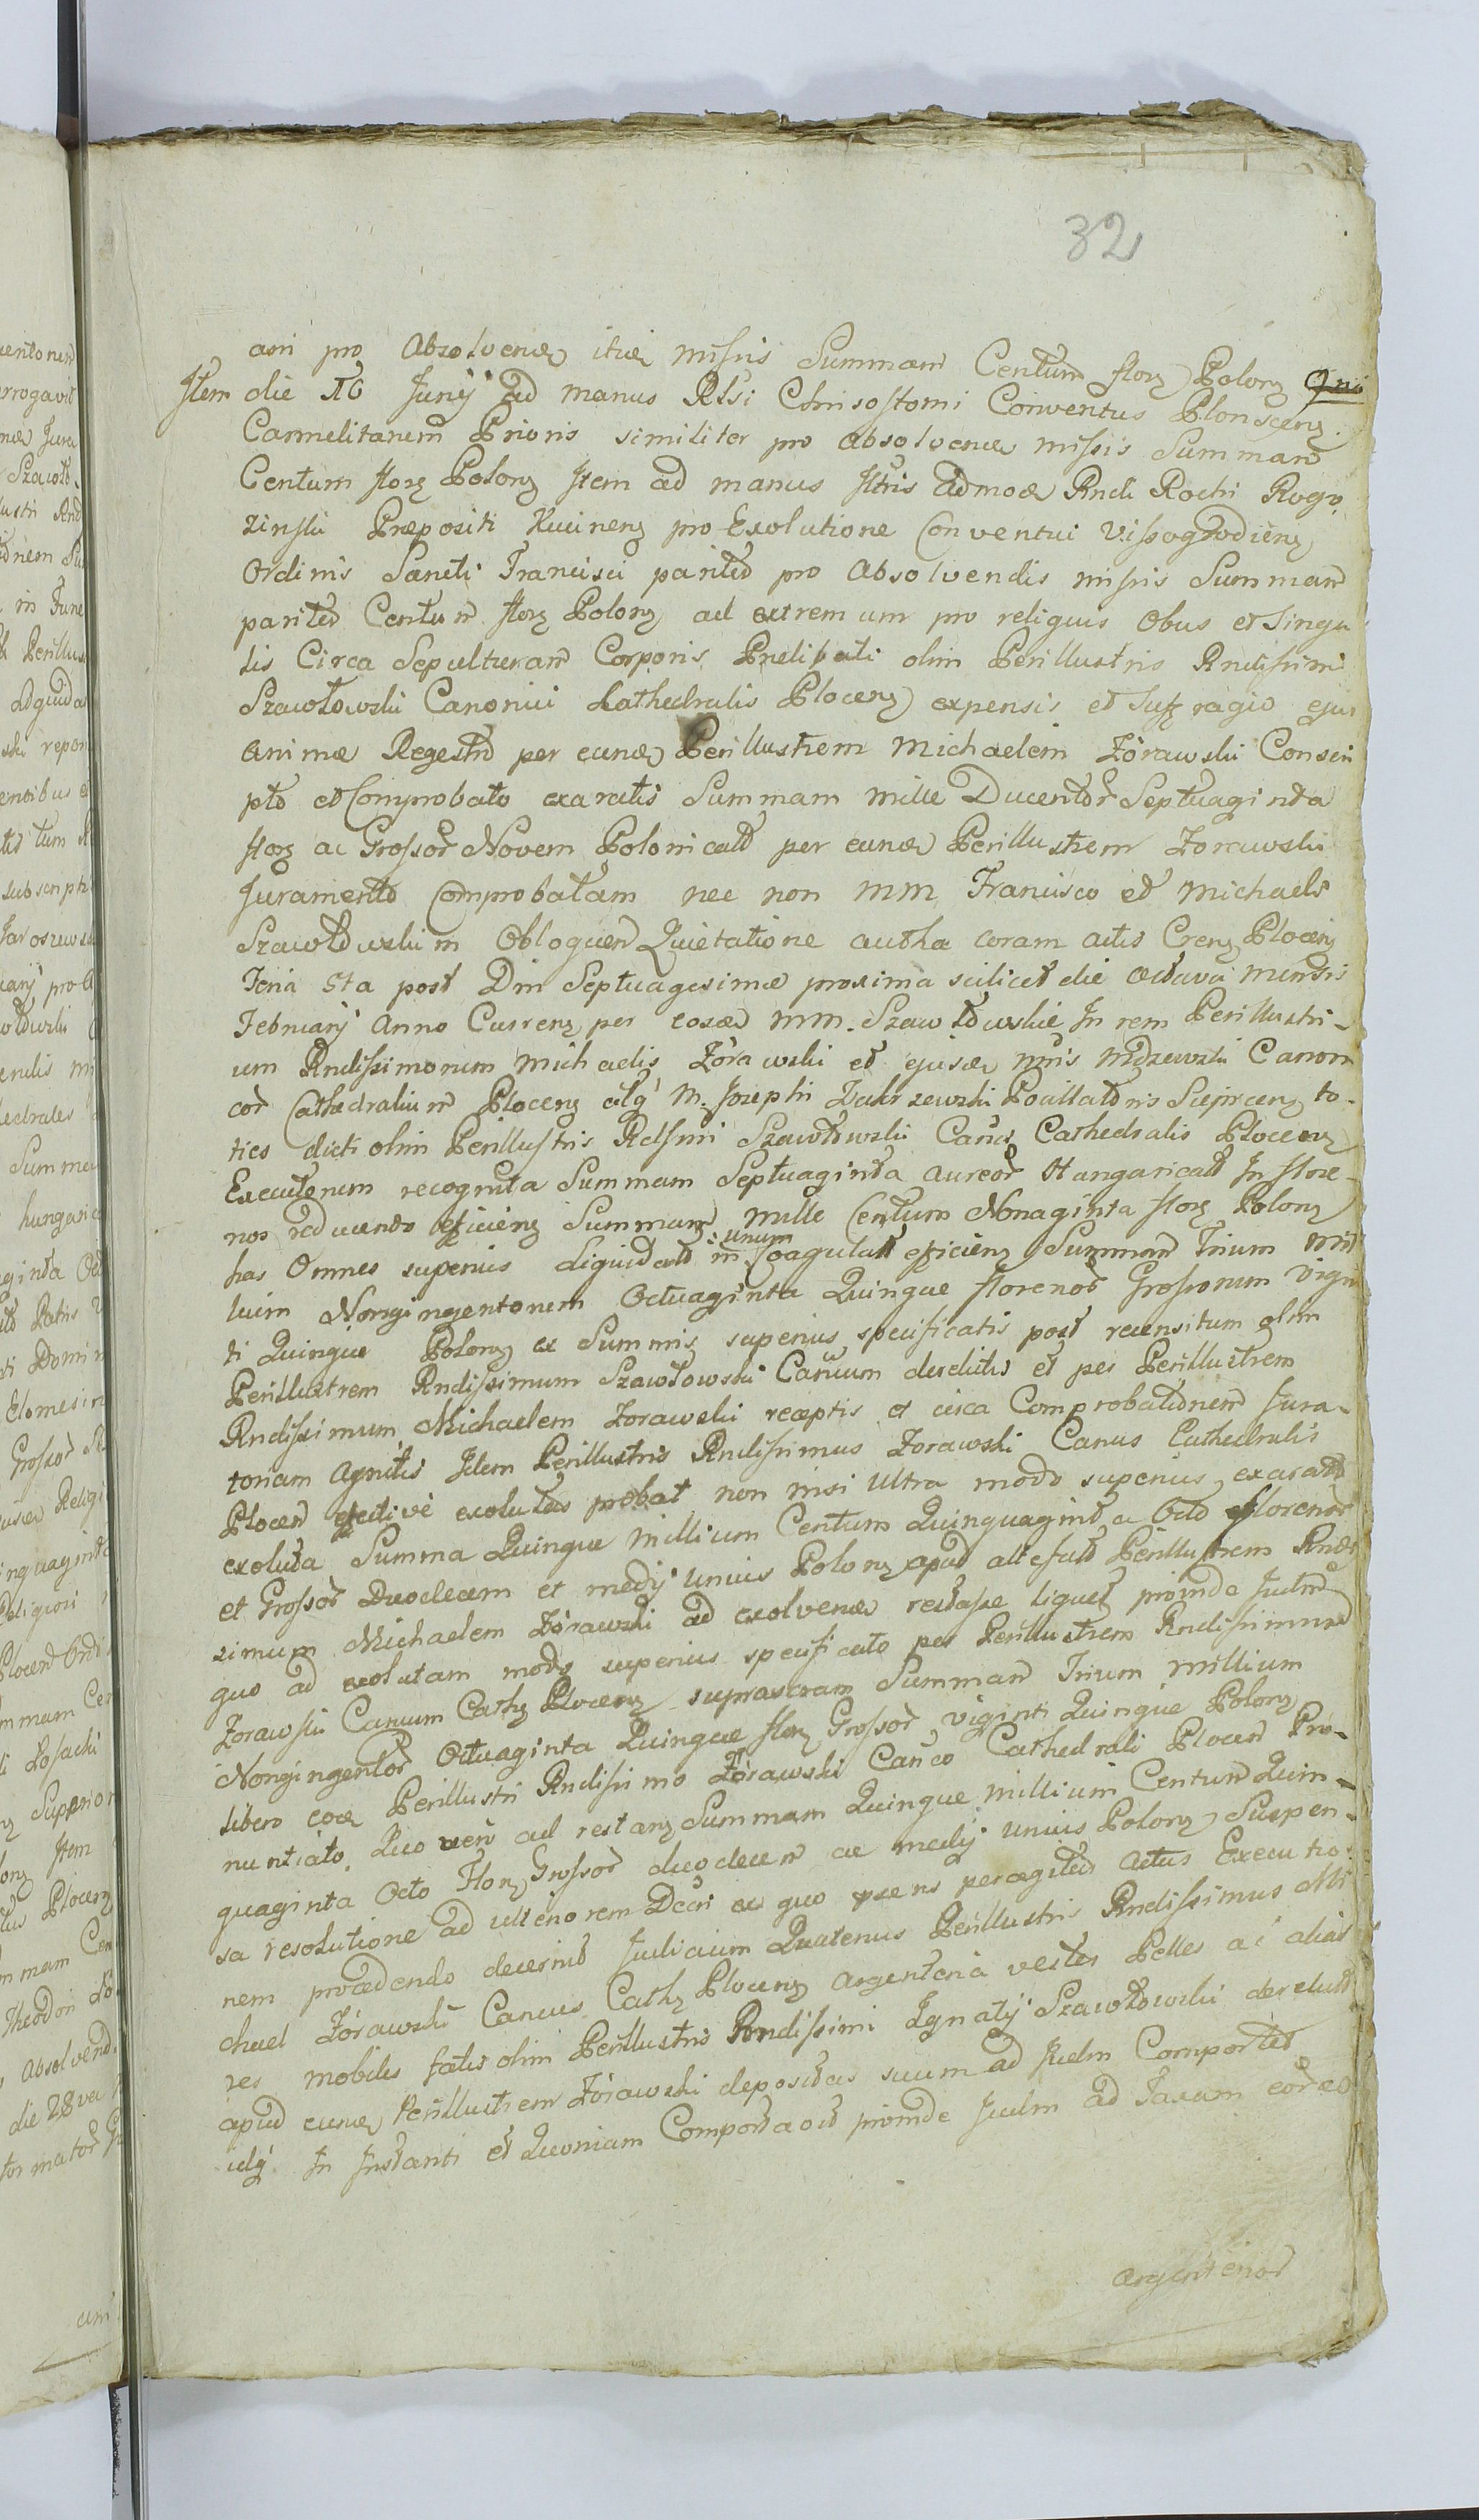 32
ani pro Absolvend itid missis Summam Centum flor Polon
Item die 16 Junij ad manus Rlsi Chrisostomi Conventus Plonscen
Carmelitarum Prioris similiter pro absolvend missis Summam
Centum flor Polon Item ad manus Iltris Admod Rndi Rochi Rogo
zinski Præpositi Kucinen pro Exolutione Conventui Vissogrodien
Ordinis Sancti Francisci pariter pro Absolvendis missis Summam
pariter Centum flor Polon ad extremum pro reliquis Obus et Singu
lis Circa Sepulturam Corporis Prælibati olim Perillustris Rndissimi
Szawłowski Canonici Cathedralis Plocen expensis et Suffragio ejus
Animæ Regestro per eund Perillustrem Michaelem Zórawski Conscri
pto et Comprobato exaratis Summam mille Ducentor Septuaginta
flor ac Grossor Novem Polonicall per eund Perillustrem Zorawski
Juramento Comprobatam nec non MM Francisco et Michaele
Szawłowskim Obloquen Quietatione autha coram actis Cren Plocen
Feria 5ta post Dm Septuagesimæ proxima scilicet die octava mensis
Februarij Anno Curren per eosd MM. Szawłowskie In rem Perillustri-
um Rndissimorum Michaelis Zórawski et ejusd nnis Mdzewski Canoni
cor Cathedralium Plocen atq M. Josephi Zakrzewski Poillatoris Sieprcen to-
ties dicti olim Perillustris Rdssmi Szawłowski Canci Cathedralis Plocen
Executorum recognita Summam Septuaginta aureor Hungaricall In flore-
nos reducendo efficien Summam mille Centum Nonaginta flor Polon
has Omnes superius liquidat in unum Coagulatt efficien Summam Trium Mil
lium Nongingentorum Octuaginta Quinque florenor Grossorum Vigin
ti Quinque Polon ex Summis superius specificatis post recensitum olim
Perillustrem Rndissimum Szawłowski Cancum derelictis et per Perillustrem
Rndissimum Michaelem Zorawski receptis et circa Comprobationem Jura-
toriam Agnitis Idem Perillustris Rndissimus Zorawski Cancus Cathedralis
Plocen effective exolutas probat non nisi Ultra modo superius exarato
exoluta Summa Quinque millium Centum Quinquaginta Octo florenor
et Grossor Duodecem et medij unius Polon apud attefatt Perillustrem Rndis
simum Michaelem Zórawski ad exolvend restasse liquet proinde Judm
quo ad exolutam modo superius specificato per Perillustrem Rndissimum
Zorawski Cancum Cath Plocen supraseram Summam Trium millium
Nongingentor Octuaginta Quinque flor Grossor viginti Quinque Polon
libero eod Perillustri Rndissimo Zórawski Canco Cathedrali Plocen Pro-
nuntiato. Quo vero ad restan Summam Quinque millium Centum Quin-
quaginta Octo Flor Grossor duodecem ac medij unius Polon Suspen-
sa resolutione ad ulteriorem Decri ex quo præns peragitur actus Executio-
nem procedendo decernit Judicium Quatenus Perillustris Rndissimus Mi
chael Zórawski Cancus Cath Plocen argenteria vestes Pelles ac alias
res mobiles fatis olim Perillustris Rndissimi Ignatij Szawłowski derelictt
apud eund Perillustrem Zórawski depositas suum ad Judm Comportet
idq In Instanti et Quoniam Comportavit proinde Judm ad Taxam eored
argenterior